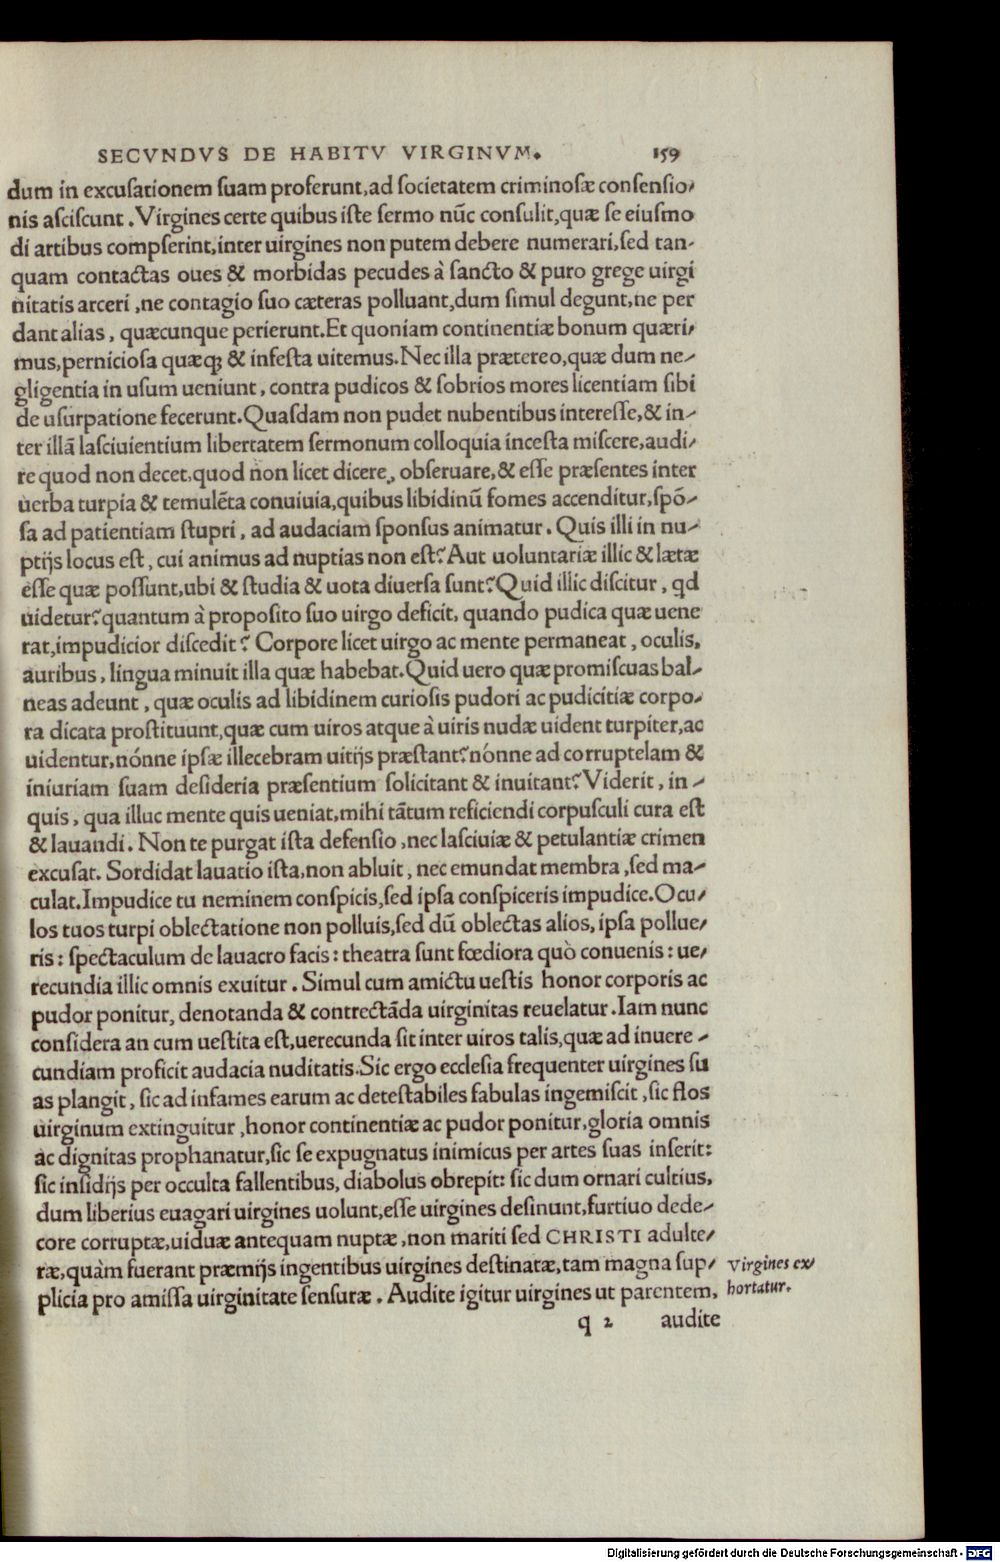 SECVNDVS DE HABITV VIRGINVM. 159
dum in excuſationem ſuam proferunt,ad ſocietatem criminoſæ conſenſio/
nis aſciſcunt. Virgines certe quibus iſte ſermo nūc conſulit,quæ ſe eiuſmo
di artibus compſerint,inter uirgines non putem debere numerari,ſed tan-
quam contactas oues & morbidas pecudes à ſancto & puro grege uirgi
nitatis arceri ,ne contagio ſuo cæteras polluant,dum ſimul degunt,ne per
dant alias, quæcunque perierunt.Et quoniam continentiæ bonum quæri/
mus,pernicioſa quæq; & infeſta uitemus.Nec illa prætereo,quæ dum ne/
gligentia in uſum ueniunt, contra pudicos & ſobrios mores licentiam ſibi
de uſurpatione fecerunt.Quaſdam non pudet nubentibus intereſſe,& in/
ter illā laſciuientium libertatem ſermonum colloquia inceſta miſcere,audi/
re quod non decet,quod non licet dicere, obſeruare,& eſſe præſentes inter
uerba turpia & temulēta conuiuia,quibus libidinū fomes accenditur,ſpō/
ſa ad patientiam ſtupri, ad audaciam ſponſus animatur. Quis illi in nu/
ptijs locus eſt, cui animus ad nuptias non eſt? Aut uoluntariæ illic & lætæ
eſſe quæ poſſunt,ubi & ſtudia & uota diuerſa ſunt? Quid illic diſcitur, qd
uidetur? quantum à propoſito ſuo uirgo deficit, quando pudica quæ uene
rat,impudicior diſcedit? Corpore licet uirgo ac mente permaneat, oculis,
auribus, lingua minuit illa quæ habebat.Quid uero quæ promiſcuas bal/
neas adeunt, quæ oculis ad libidinem curioſis pudori ac pudicitiæ corpo/
ra dicata proſtituunt,quæ cum uiros atque à uiris nudæ uident turpiter,ac
uidentur,nónne ipſæ illecebram uitijs præſtant? nónne ad corruptelam &
iniuriam ſuam deſideria præſentium ſolicitant & inuitant? Viderit, in/
quis, qua illuc mente quis ueniat,mihi tātum reficiendi corpuſculi cura eſt
& lauandi. Non te purgat iſta defenſio,nec laſciuiæ & petulantiæ crimen
excuſat. Sordidat lauatio iſta,non abluit, nec emundat membra,ſed ma/
culat.Impudice tu neminem conſpicis,ſed ipſa conſpiceris impudice.Ocu/
los tuos turpi oblectatione non polluis,ſed dū oblectas alios, ipſa pollue/
ris: ſpectaculum de lauacro facis: theatra ſunt fœdiora quò conuenis: ue/
recundia illic omnis exuitur. Simul cum amictu ueſtis honor corporis ac
pudor ponitur, denotanda & contrectāda uirginitas reuelatur. Iam nunc
conſidera an cum ueſtita eſt,uerecunda ſit inter uiros talis,quæ ad inuere/
cundiam proficit audacia nuditatis.Sic ergo eccleſia frequenter uirgines ſu
as plangit, ſic ad infames earum ac deteſtabiles fabulas ingemiſcit,ſic flos
uirginum extinguitur,honor continentiæ ac pudor ponitur,gloria omnis
ac dignitas prophanatur,ſic ſe expugnatus inimicus per artes ſuas inſerit:
ſic inſidijs per occulta fallentibus, diabolus obrepit: ſic dum ornari cultius,
dum liberius euagari uirgines uolunt,eſſe uirgines deſinunt,furtiuo dede/
core corruptæ,uiduæ antequam nuptæ,non mariti ſed CHRISTI adulte/
ræ,quàm fuerant præmijs ingentibus uirgines deſtinatæ,tam magna ſup/
plicia pro amiſſa uirginitate ſenſuræ. Audite igitur uirgines ut parentem,
Virgines ex/
hortatur.
q 2 audite
Digitalisierung gefördert durch die Deutsche Forschungsgemeinschaft - DFG